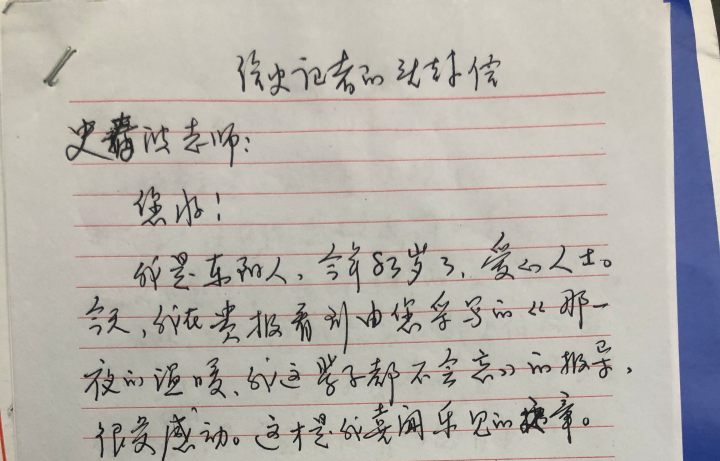 给史记者的封信
史波老师:
您好!
我是东阳人,今年83岁了,爱心人士。
今天,我在贵报看到由您采写的《那一
夜的温暖、我这辈子都不会忘》的报导,
很受感动。这才是我喜闻乐见的章。